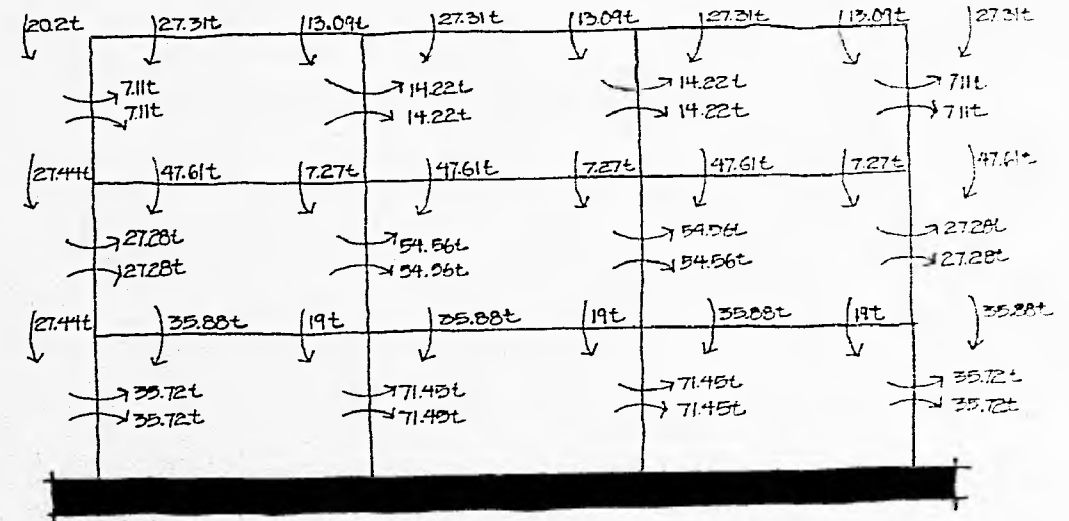 20.2t 27.31t 13.09t 27.31t 13.09t 27.31t 13.09t 27.31t
7.11t 14.22t 14.22t 7.11t
7.11t 14.22t 14.22t 7.11t
27.44t 47.61t 7.27t 47.61t 7.27t 47.61t 7.27t 47.61t
27.28t 54.56t 54.56t 27.28t
27.28t 54.56t 54.56t 27.28t
27.44t 35.88t 19t 35.88t 19t 35.88t 19t 35.88t
35.72t 71.45t 71.45t 35.72t
35.72t 71.45t 71.45t 35.72t